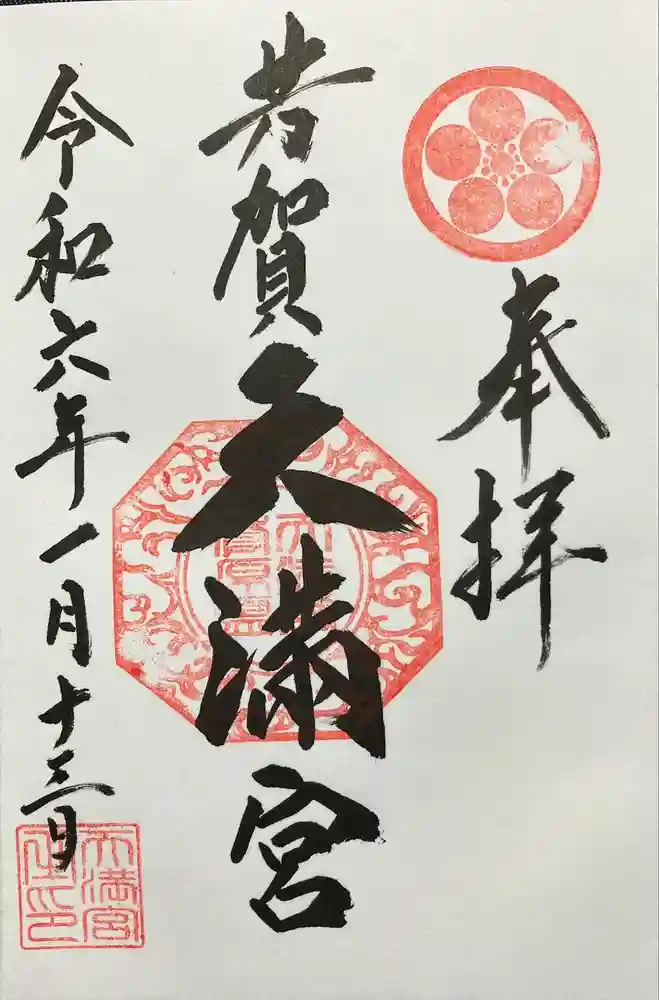 奉拝
芳賀天満宮
令和六年一月十三日
天満宮